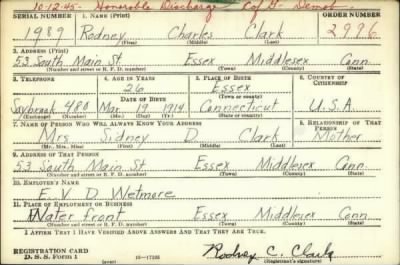 10-12-45- Honorable Discharge - Cof G- Demob.
SERIAL NUMBER 1. NAME (Print) ORDER NUMBER
1989 Rodney Charles Clark 2996
(First) (Middle) (Last)
2. ADDRESS (Print)
53 South Main St Essex Middlesex Conn.
(Number and street or R. F. D. number) (Town) (County) (State)
3. TELEPHONE 4. AGE IN YEARS 5. PLACE OF BIRTH 6. COUNTRY OF CITIZENSHIP
26 Essex
DATE OF BIRTH (Town or county)
Saybrook 480 Mar 19 1914 Connecticut U.S.A
(Exchange) (Number) (Mo.) (Day) (Yr.) (State or country)
7. NAME OF PERSON WHO WILL ALWAYS KNOW YOUR ADDRESS 8. RELATIONSHIP OF THAT PERSON
Mrs Sidney D. Clark Mother
(Mr., Mrs., Miss) (First) (Middle) (Last)
9. ADDRESS OF THAT PERSON
53 South Main St Essex Middlesex Conn
(Number and street or R. F. D. number) (Town) (County) (State)
10. EMPLOYER'S NAME
E. V D Wetmore
11. PLACE OF EMPLOYMENT OR BUSINESS
Water front Essex Middlesex Conn
(Number and street or R. F. D. number) (Town) (County) (State)
I AFFIRM THAT I HAVE VERIFIED ABOVE ANSWERS AND THAT THEY ARE TRUE.
REGISTRATION CARD
D. S. S. Form 1 (over) 16-17105 Rodney C. Clark
(Registrant's signature)